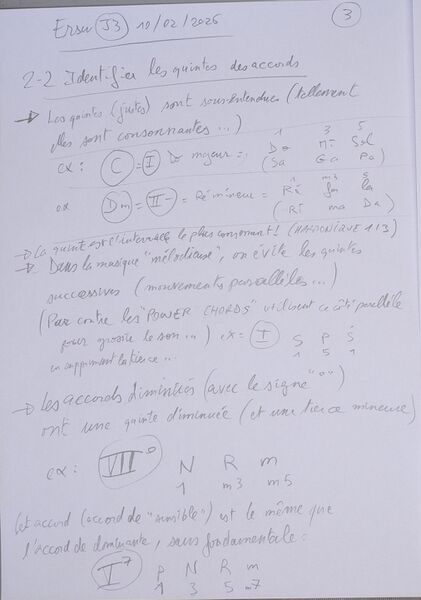 Ersu J3 10/02/2026 3
2-2 Identifier les quintes des accords
→ Les quintes (justes) sont sous-entendues (tellement
elles sont consonantes...) 1 3 5
ex : C = I Do majeur = Do Mi Sol
(Sa Ga Pa)
1 m3 5
ex Dm = II- = Ré mineur = Ré fa la
(Ri ma Da)
→ La quinte est l'intervalle le plus consonant! (HARMONIQUE 1/3)
→ Dans la musique "mélodieuse", on évite les quintes
successives (mouvements parallèles...)
(Par contre les "POWER CHORDS" utilisent ce côté parallèle
pour grossir le son...) ex = I S P Ṡ
en supprimant la tierce... 1 5 1
→ les accords diminués (avec le signe "o")
ont une quinte diminuée (et une tierce mineure)
ex : VII° N R m
1 m3 m5
Cet accord (accord de "sensible") est le même que
l'accord de dominante, sans fondamentale :
V7 P N R m
1 3 5 m7